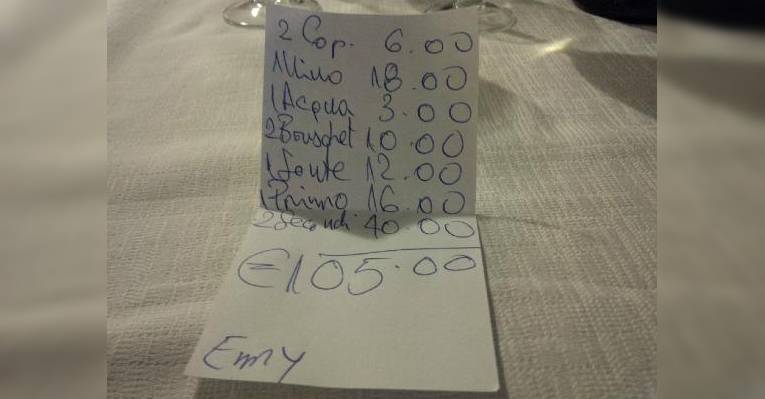 2 Cop. 6.00
1 Vino 18.00
1 Acqua 3.00
2 Bruschet 10.00
1 12.00
1 Primo 16.00
2 Secondi 40.00
€105.00
Emy